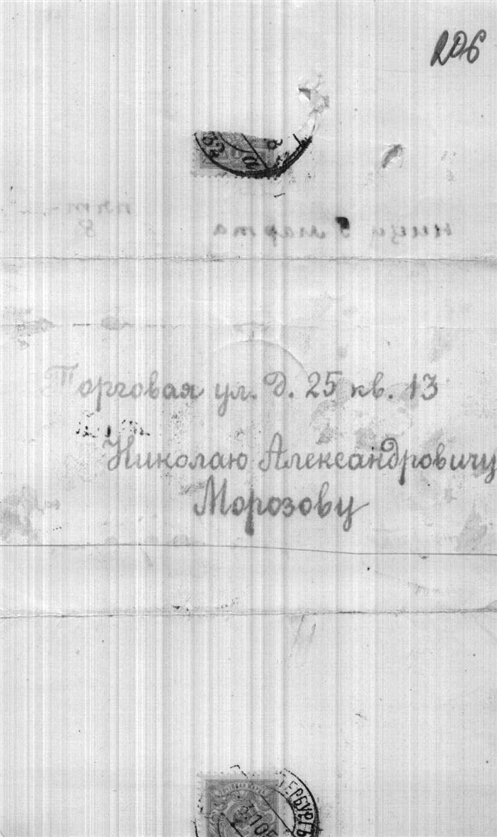 206
8 марта
Торговая ул. д. 25 кв. 13
Николаю Александровичу
Морозову